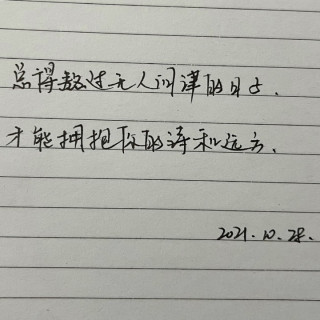 总得熬过无人问津的日子.
才能拥抱你的诗和远方.
2021.10.28.